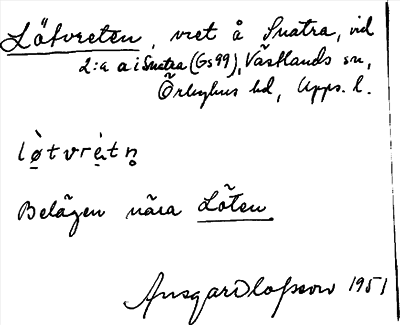 Lötvreten, vret å Snatra, vid
2:a a i Snatra (Gs 99), Västlands sn,
Örbyhus hd, Upps. l.
lø̀tvrètn̥
Belägen nära Löten
Ansgar Olofsson 1951